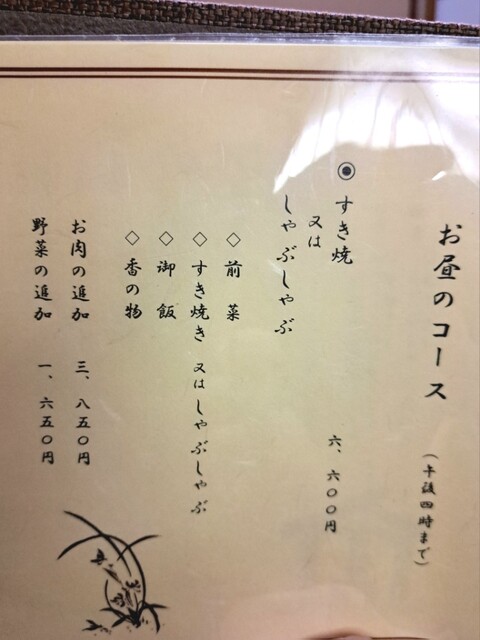 お昼のコース
(午後四時まで)
◉ すき焼
又は
しゃぶしゃぶ
六、六〇〇円
◇ 前菜
◇ すき焼き 又は しゃぶしゃぶ
◇ 御飯
◇ 香の物
お肉の追加 三、八五〇円
野菜の追加 一、六五〇円